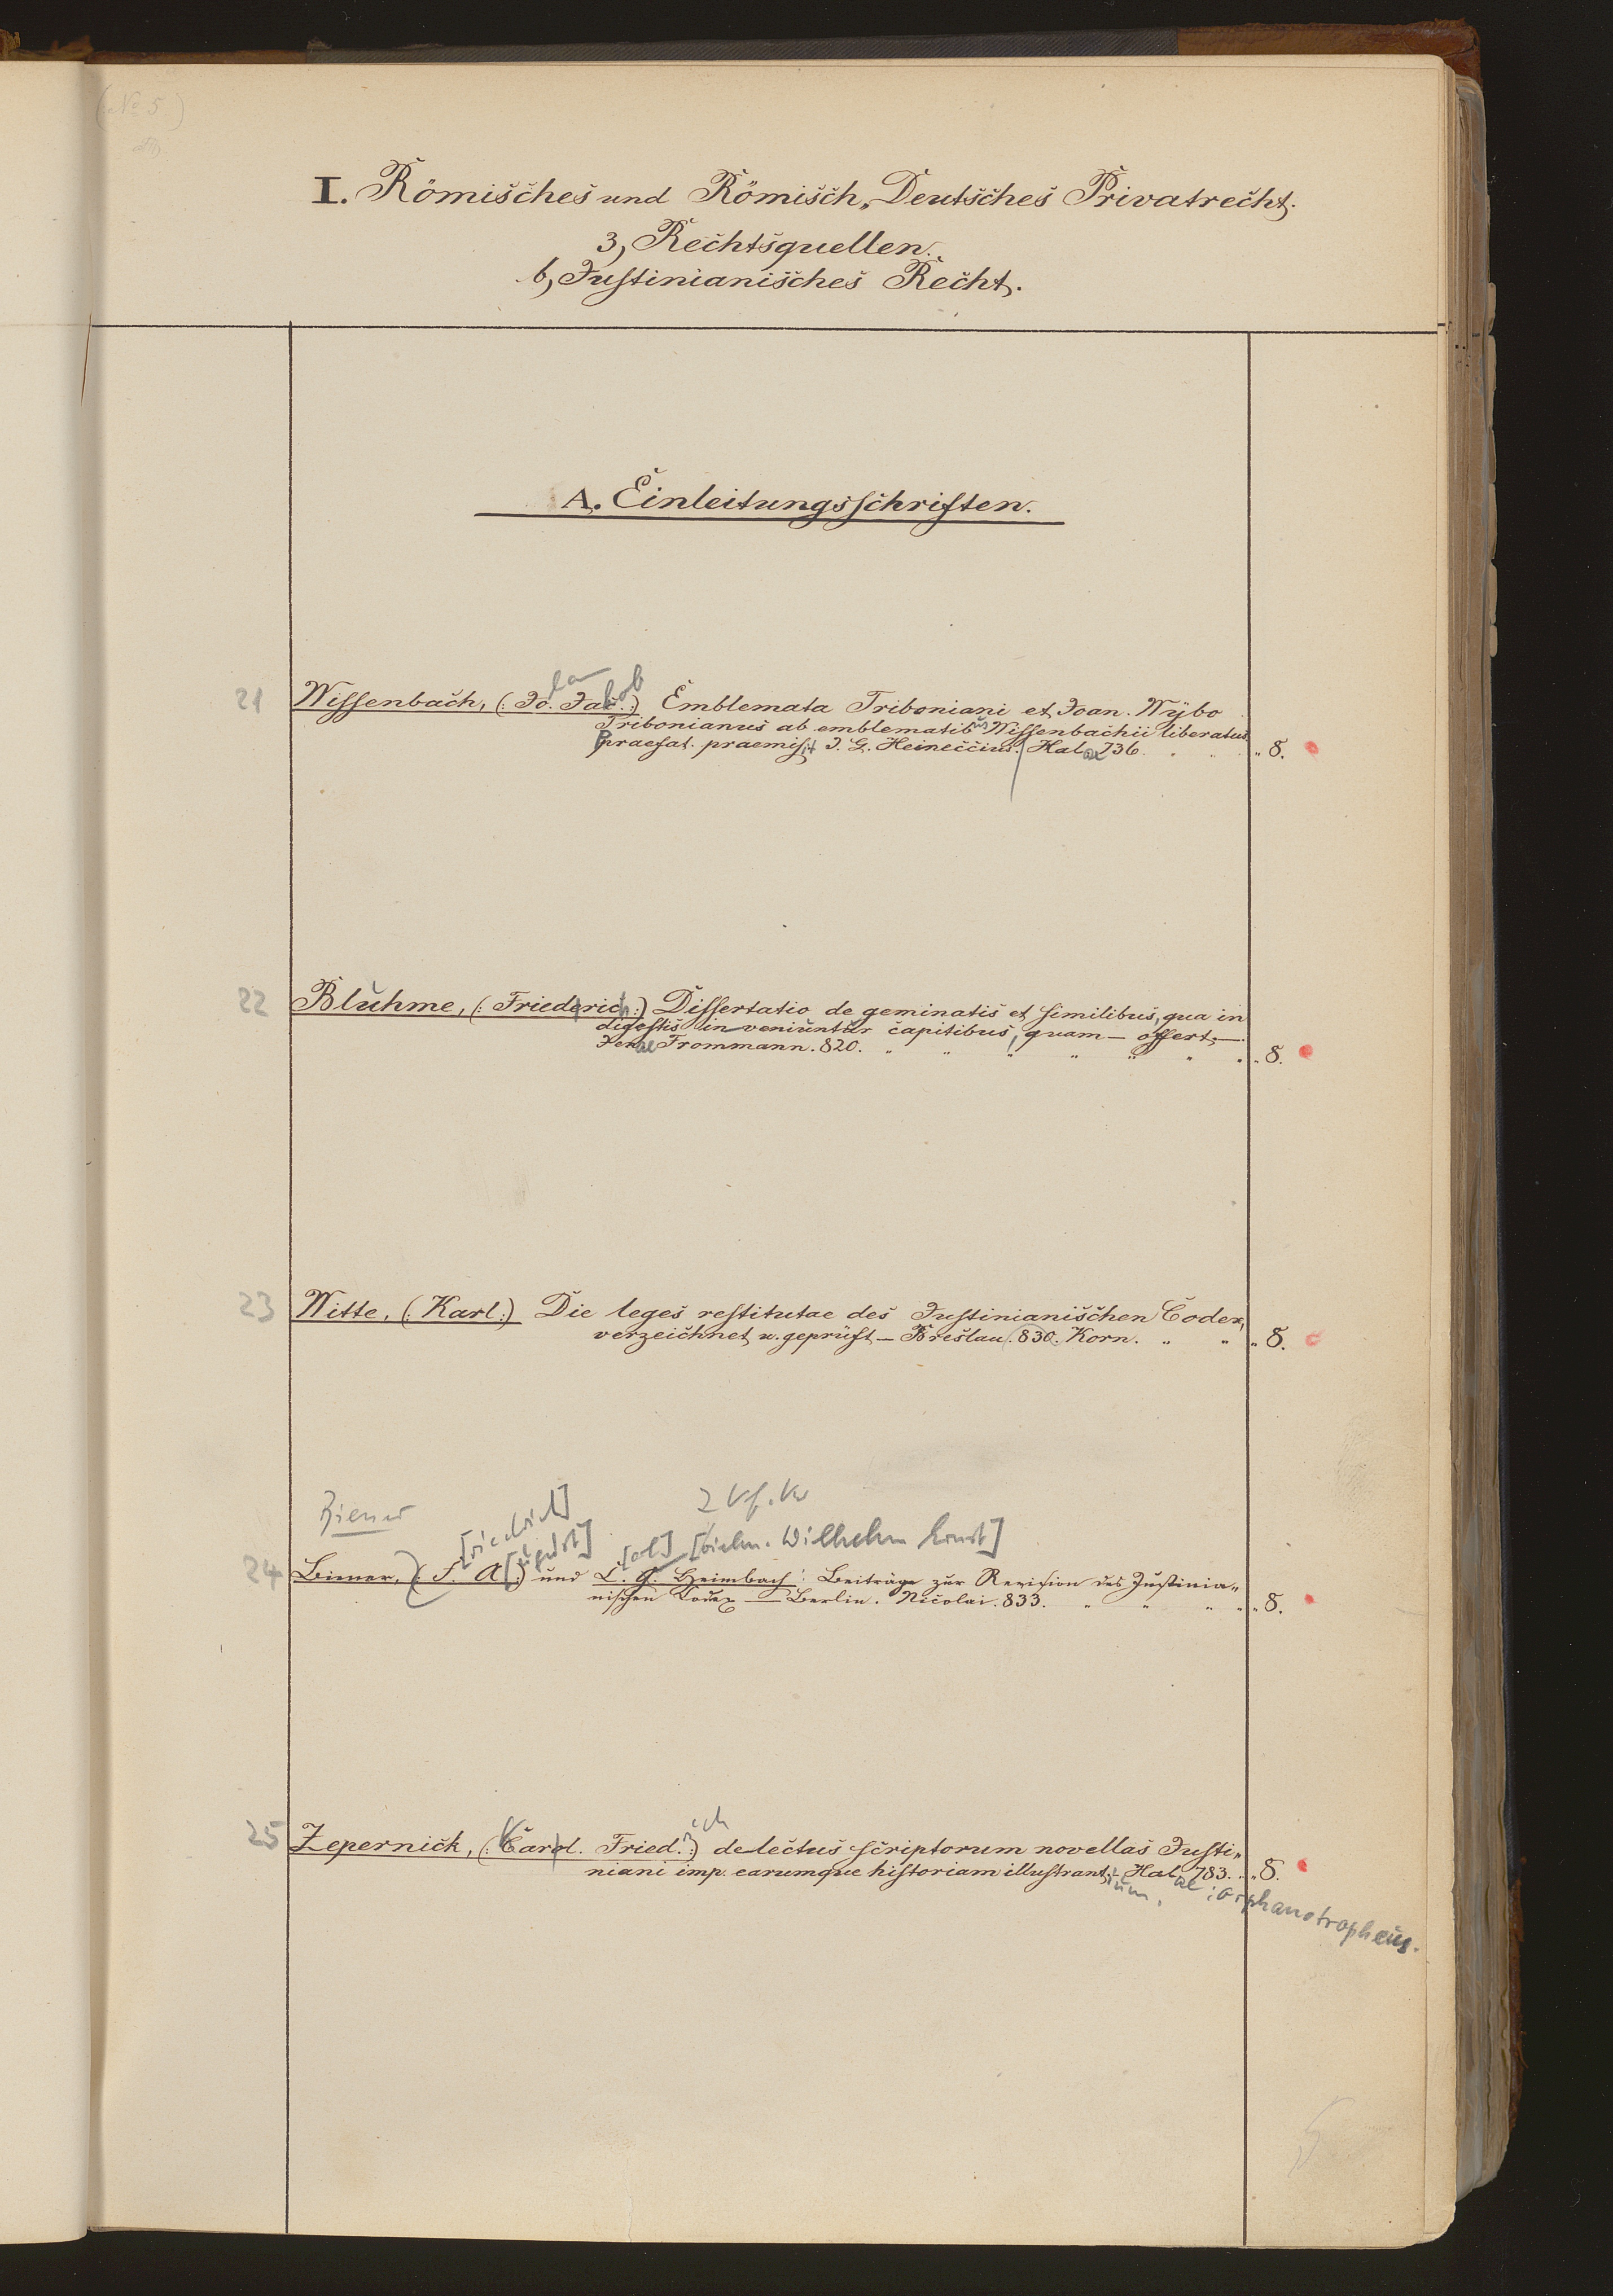 (No 5)
I. Römisches und Römisch „Deutsches Privatrecht.
3, Rechtsquellen.
b, Justinianisches Recht.
A. Einleitungsschriften.
kob
21 Wissenbach, (: Jo. Jac. :) Emblemata Triboniani et Joan. Wybo
Tribonianus ab emblematibus Wissenbachii liberatus
Praefat. praemisit J. G. Heineccius. Halae 736. „ 8.
22 Bluhme, (: Friederich :) Dissertatio de geminatis et similibus, qua in
digestis in veniuntur capitibus, quam — offert, —
Jenae Frommann. 820. „ „ „ „ „ „ „ 8.
23 Witte, (: Karl :) Die leges restitutae des Justinianischen Codex,
verzeichnet u. geprüft — Breslau. 830. Korn. „ „ „ 8.
Biener [riedrich] 2 Vf. Vw
[ugust] [arl] Wilhelm Ernst]
24 Biener, (: F. A. :) und C. G. Heimbach: Beiträge zur Revision des Justinia„
nischen Codex — Berlin. Nicolai. 833. „ „ „ „ 8.
ich
25 Zepernick, (: Carol. Fried. :) delectus scriptorum novellas Justi„
niani imp. earumque historiam illustrant — Hal. 783. „ 8.
ium. ae : orphanotropheus.
5